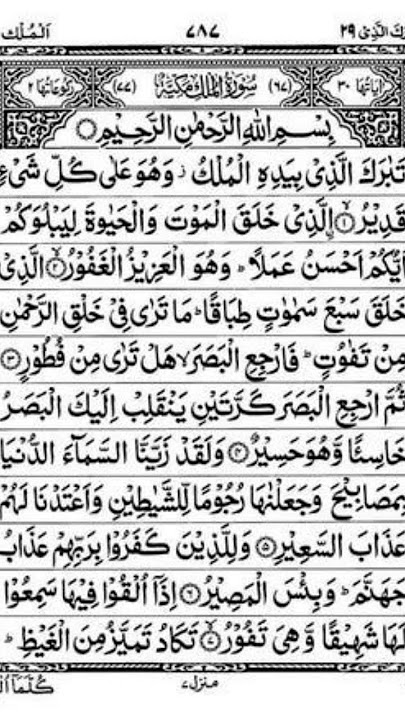 تَبٰرَكَ الَّذِیْ ٢٩ ٧٨٧ اَلْمُلْك
اٰیَاتُهَا ٣٠ (٦٧) سُوْرَةُ الْمُلْكِ مَكِّیَّةٌ (٧٧) رُكُوْعَاتُهَا ٢
بِسْمِ اللهِ الرَّحْمٰنِ الرَّحِیْمِ
تَبٰرَكَ الَّذِیْ بِیَدِهِ الْمُلْكُ ز وَهُوَ عَلٰی كُلِّ شَیْءٍ
قَدِیْرُ ۝١ اِۨلَّذِیْ خَلَقَ الْمَوْتَ وَالْحَیٰوةَ لِیَبْلُوَكُمْ
اَیُّكُمْ اَحْسَنُ عَمَلًا ؕ وَهُوَ الْعَزِیْزُ الْغَفُوْرُ ۝٢ الَّذِیْ
خَلَقَ سَبْعَ سَمٰوٰتٍ طِبَاقًا ؕ مَا تَرٰی فِیْ خَلْقِ الرَّحْمٰنِ
مِنْ تَفٰوُتٍ ؕ فَارْجِعِ الْبَصَرَ ۙ هَلْ تَرٰی مِنْ فُطُوْرٍ ۝٣
ثُمَّ ارْجِعِ الْبَصَرَ كَرَّتَیْنِ یَنْقَلِبْ اِلَیْكَ الْبَصَرُ
خَاسِئًا وَّهُوَ حَسِیْرٌ ۝٤ وَلَقَدْ زَیَّنَّا السَّمَآءَ الدُّنْیَا
بِمَصَابِیْحَ وَجَعَلْنٰهَا رُجُوْمًا لِّلشَّیٰطِیْنِ وَاَعْتَدْنَا لَهُمْ
عَذَابَ السَّعِیْرِ ۝٥ وَلِلَّذِیْنَ كَفَرُوْا بِرَبِّهِمْ عَذَابُ
جَهَنَّمَ ؕ وَبِئْسَ الْمَصِیْرُ ۝٦ اِذَاۤ اُلْقُوْا فِیْهَا سَمِعُوْا
لَهَا شَهِیْقًا وَّهِیَ تَفُوْرُ ۝٧ تَكَادُ تَمَیَّزُ مِنَ الْغَیْظِ ؕ
منزل ٧ كُلَّمَاۤ